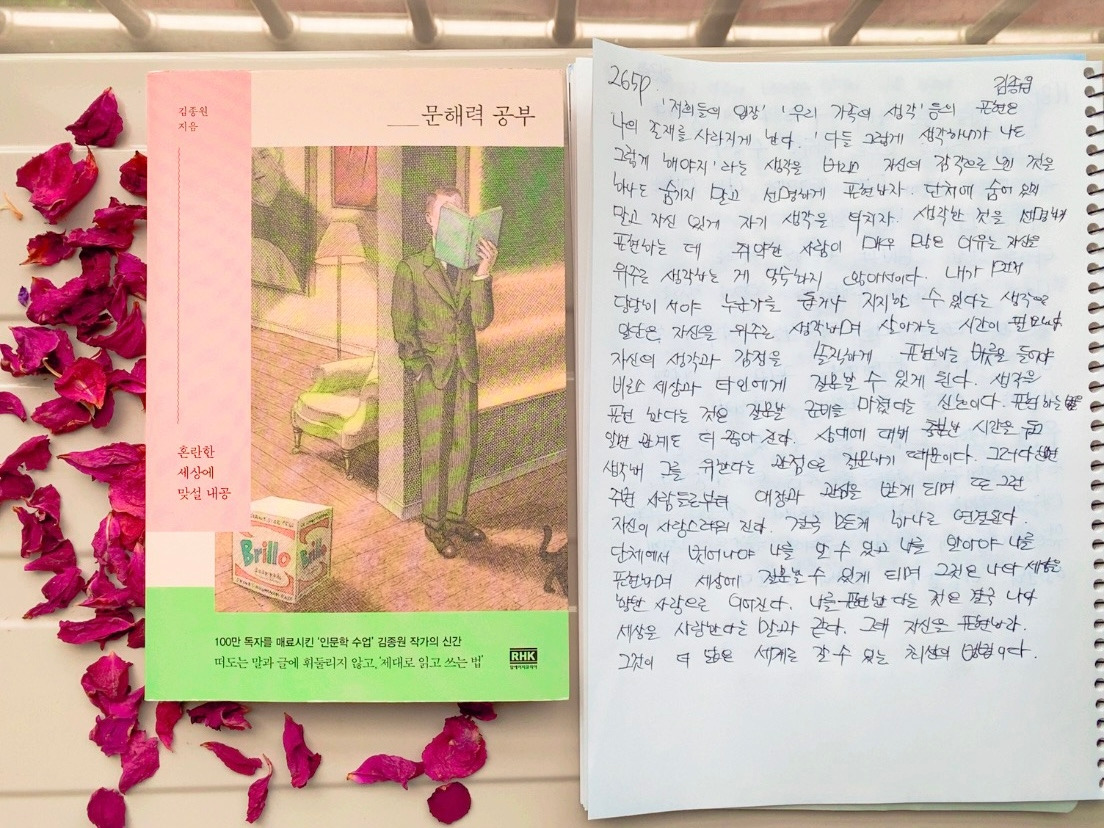 김종원
지음
__문해력 공부
혼란한
세상에
맞설 내공
Brillo
Brillo
100만 독자를 매료시킨 '인문학 수업' 김종원 작가의 신간
떠도는 말과 글에 휘둘리지 않고, '제대로 읽고 쓰는 법'
RHK
알에이치코리아
265p 김종원
'저희들의 입장' '우리 가족의 생각' 등의 표현은
나의 존재를 사라지게 한다. '다들 그렇게 생각하니까 나도
그렇게 해야지' 라는 생각을 버리고 자신의 감각으로 느낀 것을
하나도 숨기지 말고 선명하게 표현하자. 단체에 숨어 있지
말고 자신 있게 자기 생각을 펼치자. 생각한 것을 선명하게
표현하는 데 취약한 사람이 매우 많은 이유는 자신을
위주로 생각하는 게 익숙하지 않아서이다. 내가 먼저
당당히 서야 누군가를 돕거나 지지할 수 있다는 생각으로
일단은 자신을 위주로 생각하며 살아가는 시간이 필요하다.
자신의 생각과 감정을 솔직하게 표현하는 버릇을 들여야
비로소 세상과 타인에게 질문할 수 있게 된다. 생각을
표현 한다는 것은 질문할 준비를 마쳤다는 신호이다. 표현하는
인간 관계도 더 좋아 진다. 상대에 대해 충분한 시간을 두고
생각해 그를 위한다는 관점으로 질문하기 때문이다. 그러다 보면
주변 사람들로부터 애정과 관심을 받게 되며 또 그런
자신이 사랑스러워 진다. 결국 모든게 하나로 연결된다.
단체에서 벗어나야 나를 알 수 있고 나를 알아야 나를
표현하며 세상에 질문할 수 있게 되며 그것은 나와 세상을
향한 사랑으로 이어진다. 나를 표현한 다는 것은 결국 나와
세상을 사랑한다는 말과 같다. 그대 자신을 표현하라.
그것이 더 넓은 세계로 갈 수 있는 최선의 방법이다.